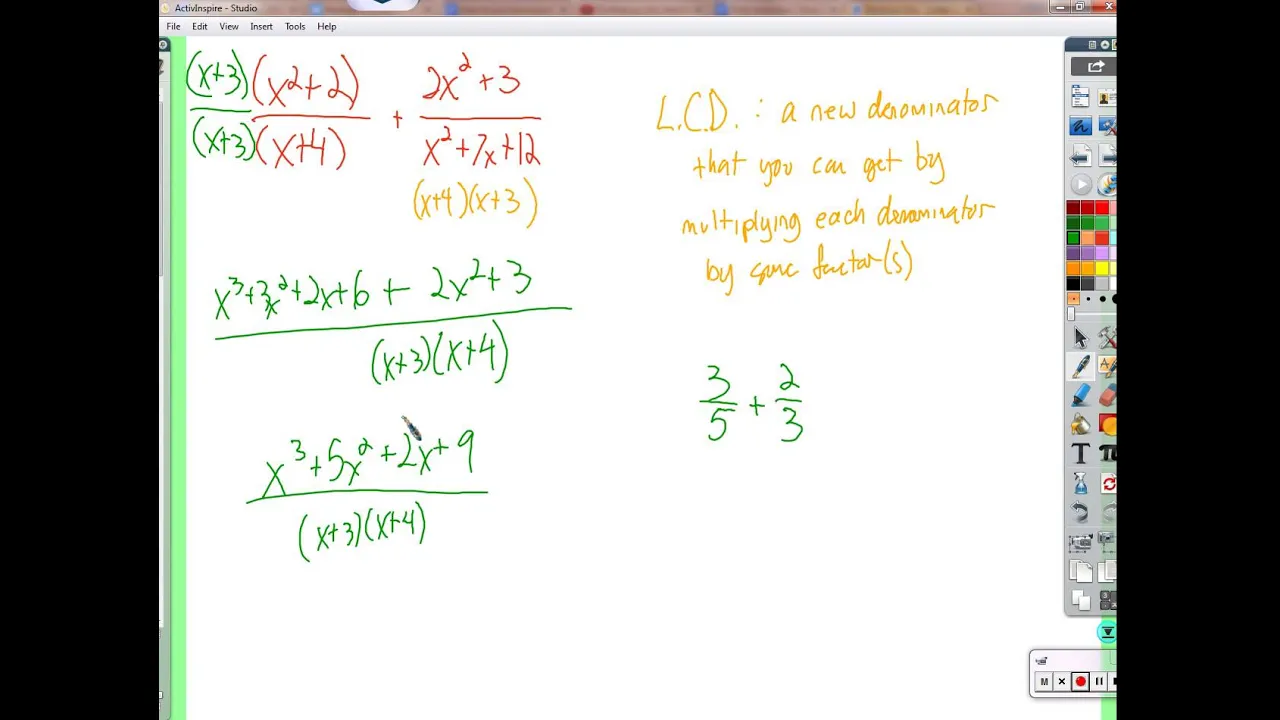 ActivInspire - Studio
File Edit View Insert Tools Help
(x+3)(x²+2) / (x+3)(x+4) + 2x²+3 / x²+7x+12
(x+4)(x+3)
x³+3x²+2x+6 + 2x²+3
(x+3)(x+4)
x³+5x²+2x+9
(x+3)(x+4)
L.C.D. : a new denominator
that you can get by
multiplying each denominator
by some factor(s)
3/5 + 2/3
T
M